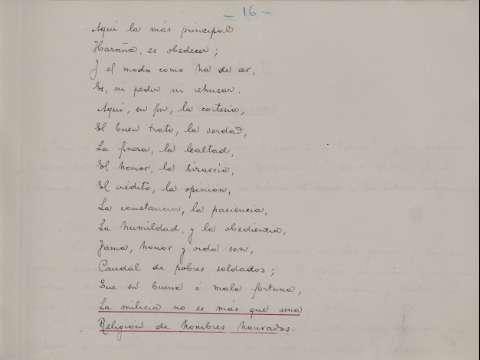 - 16 -
Aquí la más principal
Hazaña, es obedecer;
Y el modo como ha de ser,
Es, ni pedir ni rehusar.
Aquí, en fin, la cortesia,
El buen trato, la verdad,
La fineza, la lealtad,
El honor, la bizarria,
El crédito, la opinion,
La constancia, la paciencia,
La humildad, y la obediencia,
Fama, honor y vida son,
Caudal de pobres soldados;
Que en buena ó mala fortuna,
La milicia no es más que una
Religion de hombres honrados.